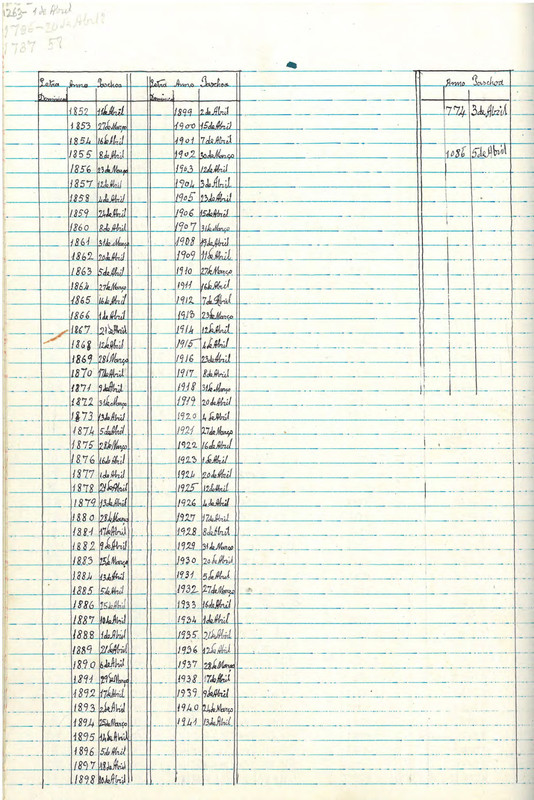 1263- 1 de Abril
1786-20 de Abril
1787 57
Letra Dominical Anno Paschoa
1852 11 de Abril
1853 27 de Março
1854 16 de Abril
1855 8 de Abril
1856 23 de Março
1857 12 de Abril
1858 4 de Abril
1859 24 de Abril
1860 8 de Abril
1861 31 de Março
1862 20 de Abril
1863 5 de Abril
1864 27 de Março
1865 16 de Abril
1866 1 de Abril
1867 21 de Abril
1868 12 de Abril
1869 28 de Março
1870 17 de Abril
1871 9 de Abril
1872 31 de Março
1873 13 de Abril
1874 5 de Abril
1875 28 de Março
1876 16 de Abril
1877 1 de Abril
1878 21 de Abril
1879 13 de Abril
1880 28 de Março
1881 17 de Abril
1882 9 de Abril
1883 25 de Março
1884 13 de Abril
1885 5 de Abril
1886 25 de Abril
1887 10 de Abril
1888 1 de Abril
1889 21 de Abril
1890 6 de Abril
1891 29 de Março
1892 17 de Abril
1893 2 de Abril
1894 25 de Março
1895 14 de Abril
1896 5 de Abril
1897 18 de Abril
1898 10 de Abril
Letra Dominical Anno Paschoa
1899 2 de Abril
1900 15 de Abril
1901 7 de Abril
1902 30 de Março
1903 12 de Abril
1904 3 de Abril
1905 23 de Abril
1906 15 de Abril
1907 31 de Março
1908 19 de Abril
1909 11 de Abril
1910 27 de Março
1911 16 de Abril
1912 7 de Abril
1913 23 de Março
1914 12 de Abril
1915 4 de Abril
1916 23 de Abril
1917 8 de Abril
1918 31 de Março
1919 20 de Abril
1920 4 de Abril
1921 27 de Março
1922 16 de Abril
1923 1 de Abril
1924 20 de Abril
1925 12 de Abril
1926 4 de Abril
1927 17 de Abril
1928 8 de Abril
1929 31 de Março
1930 20 de Abril
1931 5 de Abril
1932 27 de Março
1933 16 de Abril
1934 1 de Abril
1935 21 de Abril
1936 12 de Abril
1937 28 de Março
1938 17 de Abril
1939 9 de Abril
1940 24 de Março
1941 13 de Abril
Anno Paschoa
774 3 de Abril
1086 5 de Abril